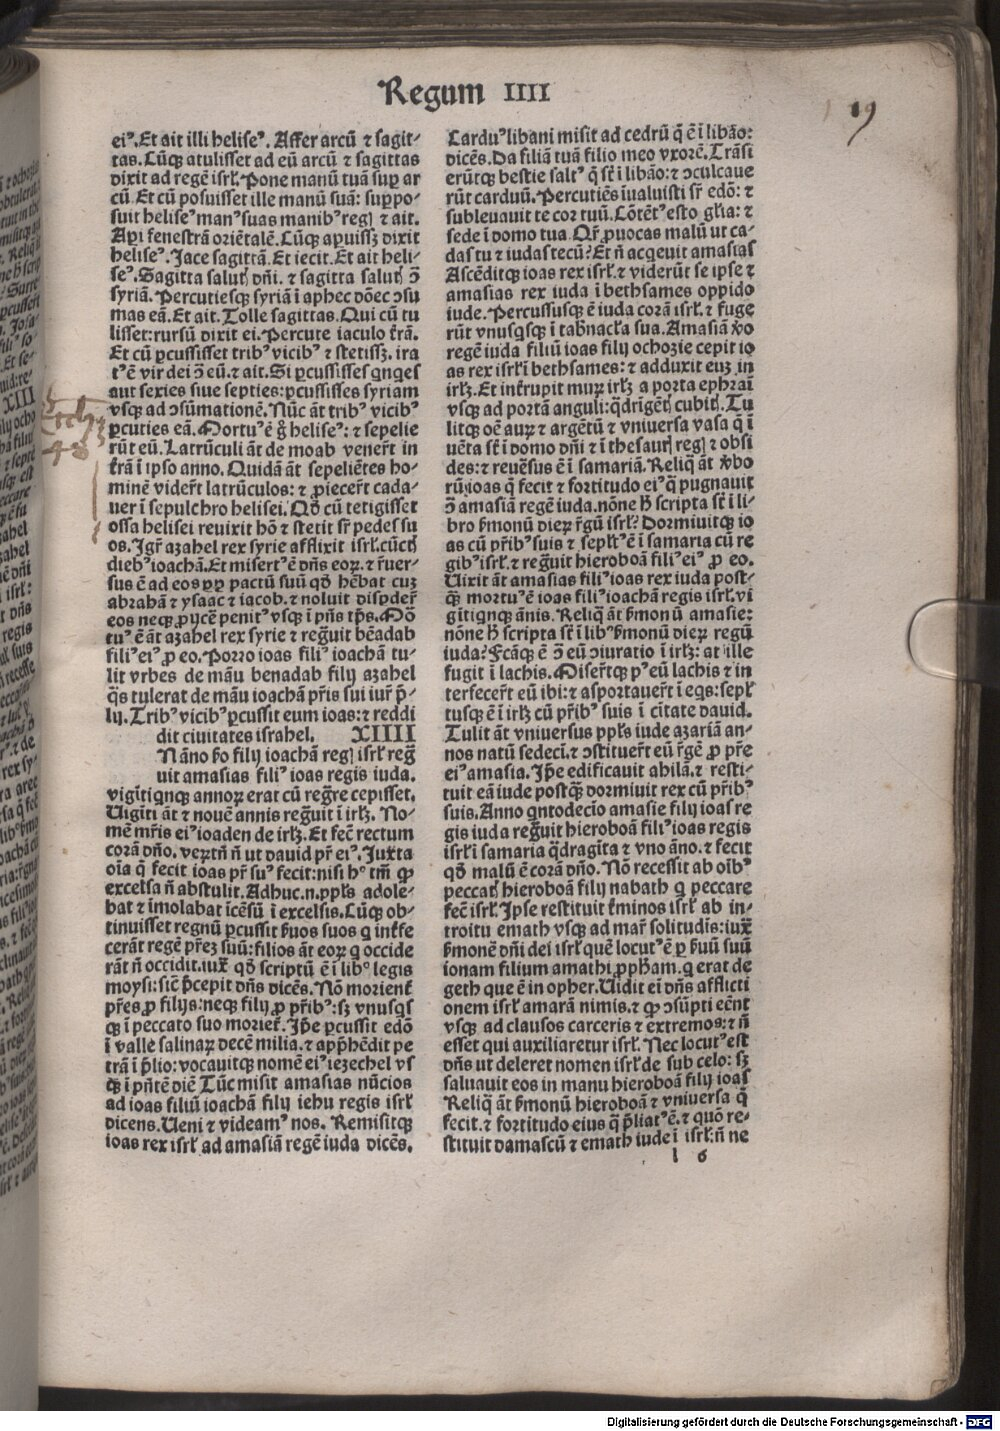 Regum IIII
19
eiꝰ. Et ait illi heliseꝰ. Affer arcū ⁊ sagit-
tas. Cūqꝫ atulisset ad eū arcū ⁊ sagittas
dixit ad regē isrł. Pone manū tuā suꝑ ar
cū. Et cū posuisset ille manū suā: suꝑpo-
suit heliseꝰ manꝰ suas manibꝰ regꝭ ⁊ ait.
Aꝑi fenestrā oriētalē. Cūqꝫ aꝑuissꝫ dixit
heliseꝰ. Jace sagittā. Et iecit. Et ait heli-
seꝰ. Sagitta salutꝭ dn̄i. ⁊ sagitta salutꝭ ↄ̄
syriā. Percutiesqꝫ syriā ī aphec dōec ↄsu
mas eā. Et ait. Tolle sagittas. Qui cū tu
lisset: rursū dixit ei. Percute iaculo t̄rā.
Et cū ꝑcussisset tribꝰ vicibꝰ ⁊ stetissꝫ. ira
tꝰ ē vir dei ↄ̄ eū. ⁊ ait. Si ꝑcussisses qnqes
aut sexies siue septies: ꝑcussisses syriam
vsqꝫ ad ↄsūmationē. Nūc āt tribꝰ vicibꝰ
ꝑcuties eā. Mortuꝰ ē g̊ heliseꝰ: ⁊ sepelie
rūt eū. Latrūculi āt de moab venerūt in
t̄rā ī ipso anno. Quidā āt sepeliētes ho-
minē viderūt latrūculos: ⁊ ꝓiecerūt cada-
uer ī sepulchro helisei. Qḋ cū tetigisset
ossa helisei reuixit hō ⁊ stetit sr̄ pedes su
os. Jgr̄ azahel rex syrie afflixit isrł. cūctꝭ
diebꝰ ioachā. Et misertꝰ ē dn̄s eoꝝ. ⁊ r̄uer-
sus ē ad eos ꝓpꝑ pactū suū qḋ hēbat cuꝫ
abrahā ⁊ ysaac ⁊ iacob. ⁊ noluit disꝑder̄
eos neqꝫ ꝓijcē penitꝰ vsqꝫ ī pn̄s tp̄s. Mō
tuꝰ ē āt azahel rex syrie ⁊ regͣuit bēadab
filiꝰ eiꝰ ꝓ eo. Porro ioas filiꝰ ioachā tu-
lit vrbes de māu benadab filij azahel
q̄s tulerat de māu ioachā pr̄is sui iur̄ p̄-
lij. Tribꝰ vicibꝰ ꝑcussit eum ioas: ⁊ reddi
dit ciuitates israhel. XIIII
Nāno ẜo filij ioachā regꝭ isrł regͣ
uit amasias filiꝰ ioas regis iuda.
vigīti qnqꝫ annoꝝ erat cū regͣre cepisset.
Uigīti āt ⁊ nouē annis regͣuit ī irłꝫ. No-
mē mr̄is eiꝰ ioaden de irłꝫ. Et fec̄ rectum
corā dn̄o. veꝝtn̄ n̄ ut dauid pr̄ eiꝰ. Juxta
oīa q̄ fecit ioas pr̄ suꝰ fecit: nisi hͦ tm̄ ꝙ
excelsa n̄ abstulit. Adhuc .n. ppłs adole-
bat ⁊ īmolabat īcēsū ī excelsis. Cūqꝫ ob-
tinuisset regnū ꝑcussit ẜuos suos q int̄fe
cerāt regē pr̄eꝫ suū: filios āt eoꝝ q occide
rāt n̄ occidit. iuxͣ qḋ scriptū ē ī libͦ legis
moysi: sic̄ p̄cepit dn̄s dicēs. Nō morient̄
pr̄es ꝓ filijs: neqꝫ filij ꝓ pr̄ibꝰ: sꝫ vnusqs
qꝫ ī peccato suo moriet̄. Jp̄e ꝑcussit edō
ī valle salinaꝝ decē milia. ⁊ app̄hēdit pe
trā ī p̄lio: vocauitqꝫ nomē eiꝰ iezechel vs
qꝫ ī pn̄tē diē Tūc misit amasias nūcios
ad ioas filiū ioachā filij iehu regis isrł
dicens. Ueni ⁊ videamꝰ nos. Remisitqꝫ
ioas rex isrł ad amasiā regē iuda dicēs.
Carduꝰ libani misit ad cedrū q̄ ē ī libāo:
dicēs. Da filiā tuā filio meo vxorē. Trāsi
erūtqꝫ bestie saltꝰ q̄ st̄ ī libāo: ⁊ ↄculcaue
rūt carduū. Percutiēs īualuisti sr̄ edō: ⁊
subleuauit te cor tuū. Cōtētꝰ esto gł̄ia: ⁊
sede ī domo tua. Qr̄ ꝓuocas malū ut ca-
das tu ⁊ iudas tecū? Et n̄ acqeuit amasias
Ascēditqꝫ ioas rex isrł. ⁊ viderūt se ipse ⁊
amasias rex iuda ī bethsames oppido
iude. Percussusqꝫ ē iuda corā isrł. ⁊ fuge
rūt vnusqsqꝫ ī tab̄nacła sua. Amasiā ꝟo
regē iuda filiū ioas filij ochozie cepit io
as rex isrł ī bethsames: ⁊ adduxit euꝫ in
irłꝫ. Et int̄rupit muꝝ irłꝫ a porta ephrai
vsqꝫ ad portā anguli: q̄drīgētꝭ cubitꝭ. Tu
litqꝫ oē auꝝ ⁊ argētū ⁊ vniuersa vasa q̄ ī
uēta st̄ ī domo dn̄i ⁊ ī thesaurꝭ regꝭ ⁊ obsi
des: ⁊ reuēsus ē ī samariā. Reliq̄ āt ꝟbo
rū ioas q̄ fecit ⁊ fortitudo eiꝰ q̄ pugnauit
ↄ̄ amasiā regē iuda. nōne h̄ scripta st̄ ī li-
bro ẜmonū dieꝝ r̄gū isrł? Dormiuitqꝫ io
as cū pr̄ibꝰ suis ⁊ sepłtꝰ ē ī samaria cū re
gibꝰ isrł. ⁊ regͣuit hieroboā filiꝰ eiꝰ ꝓ eo.
Uixit āt amasias filiꝰ ioas rex iuda post-
q̄ꝫ mortuꝰ ē ioas filiꝰ ioachā regis isrł. vi
gītiqnqꝫ ānis. Reliq̄ āt ẜmonū amasie:
nōne h̄ scripta st̄ ī libꝰ ẜmonū dieꝝ regū
iuda? Fcāqꝫ ē ↄ̄ eū ↄiuratio ī irłꝫ: at ille
fugit ī lachis. Miserūtqꝫ pꝰ eū lachis ⁊ in
terfecerūt eū ibi: ⁊ asportauerūt ī eqs: sepł
tusqꝫ ē ī irłꝫ cū pr̄ibꝰ suis ī ciītate dauid.
Tulit āt vniuersus ppłs iude azariā an-
nos natū sedeci. ⁊ ↄstituerūt eū r̄gē ꝓ pr̄e
eiꝰ amasia. Jp̄e edificauit ahilā. ⁊ resti-
tuit eā iude postq̄ꝫ dormiuit rex cū pr̄ibꝰ
suis. Anno qntodecīo amasie filij ioas re
gis iuda regͣuit hieroboā filiꝰ ioas regis
isrł ī samaria q̄dragīta ⁊ vno āno. ⁊ fecit
qḋ malū ē corā dn̄o. Nō recessit ab oībꝰ
peccatꝭ hieroboā filij nabath q peccare
fec̄ isrł. Jpse restituit t̄minos isrł ab in-
troitu emath vsqꝫ ad mar̄ solitudīs: iuxͣ
ẜmonē dn̄i dei isrł quē locutꝰ ē ꝑ ẜuū suū
ionam filium amathi ꝓpħam. q erat de
geth que ē in opher. Uidit ei dn̄s afflicti
onem isrł amarā nimis. ⁊ ꝙ ↄsūpti eēnt
vsqꝫ ad clausos carceris ⁊ extremos: ⁊ n̄
esset qui auxiliaretur isrł. Nec locutꝰ est
dn̄s ut deleret nomen isrł de sub celo: sꝫ
saluauit eos in manu hieroboā filij ioas
Reliq̄ āt ẜmonū hieroboā ⁊ vniuersa q̄
fecit. ⁊ fortitudo eius q̄ p̄liatꝰ ē. ⁊ quō re-
stituit damascū ⁊ emath iude ī isrł: n̄ ne
l 6
Digitalisierung gefördert durch die Deutsche Forschungsgemeinschaft - DFG